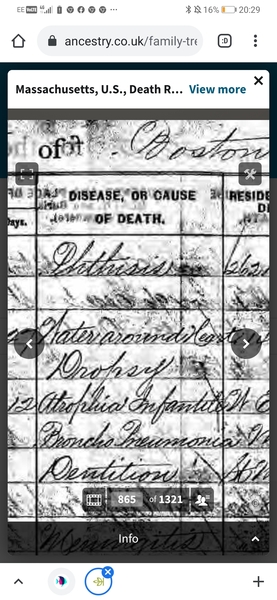 EE
16%
20:29
ancestry.co.uk/family-tre
:D
Massachusetts, U.S., Death R... View more
of Boston
DISEASE, OR CAUSE
OF DEATH.
RESIDE
ays.
Phthisis
Water around Heart
Dropsy
12 Atrophia Infantile
Broncho Pneumonia
Dentition
865 of 1321
Meningitis
Info